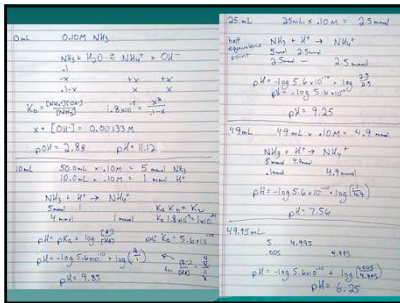 0mL 0.10M NH₃
NH₃ + H₂O ⇌ NH₄⁺ + OH⁻
.1
-x +x +x
.1-x x x
K_b = [NH₄⁺][OH⁻]/[NH₃] 1.8x10⁻⁵ = x²/.1-x
x = [OH⁻] = 0.00133M
pOH = 2.88 pH = 11.12
10mL 50.0mL x .10M = 5 mmol NH₃
10.0mL x .10M = 1 mmol H⁺
NH₃ + H⁺ → NH₄⁺
5mmol 1
4 mmol 1 mmol
Ka Kb = Kw
Ka 1.8x10⁻⁵ = 1x10⁻¹⁴
pH = pKa + log [A⁻]/[HA] NH₄⁺ Ka = 5.6x10⁻¹⁰
pH = -log 5.6x10⁻¹⁰ + log (4/1)
pH = 9.85
25 mL 25mL x .10M = 2.5 mmol
half equivalence point
NH₃ + H⁺ → NH₄⁺
5mmol 2.5mmol
2.5mmol - 2.5
pH = -log 5.6x10⁻¹⁰ + log 2.5/2.5
pH = -log 5.6x10⁻¹⁰
pH = 9.25
49mL 49mL x .10M = 4.9 mmol
NH₃ + H⁺ → NH₄⁺
5mmol 4.9mmol
.1mmol 4.9mmol
pH = -log 5.6x10⁻¹⁰ + log (.1/4.9)
pH = 7.56
49.95mL
5 4.995
.005 4.995
pH = -log 5.6x10⁻¹⁰ + log (.005/4.995)
pH = 6.25